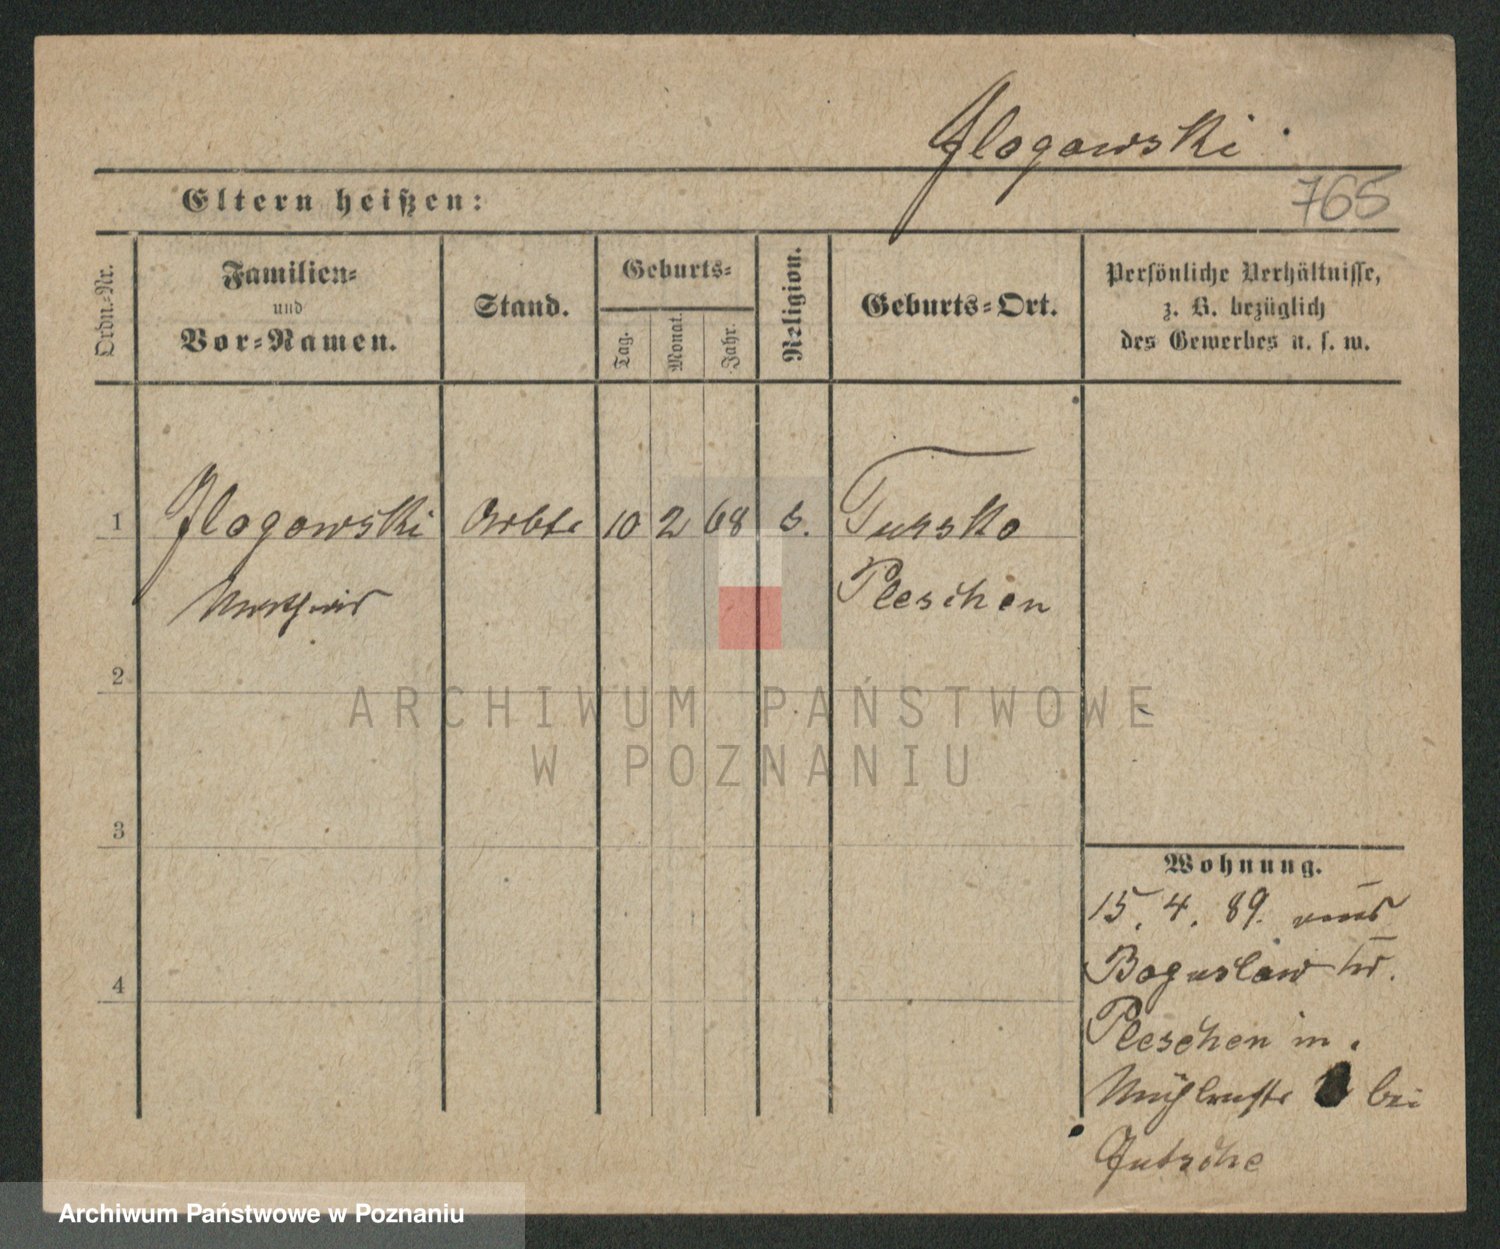 Glogowski
Eltern heißen:
765
Ordn.-Nr.
Familien-
und
Vor-Namen.
Stand.
Geburts-
Tag.
Monat.
Jahr.
Religion.
Geburts-Ort.
Persönliche Verhältnisse,
z. B. bezüglich
des Gewerbes u. s. w.
1 Glogowski 10 2 68 Tursko
Pleschen
2
3
4
Wohnung.
15. 4. 89. aus
Boguslaw Kr.
Pleschen in
Mühlenstr bei
Gutsche
ARCHIWUM PAŃSTWOWE
W POZNANIU
Archiwum Państwowe w Poznaniu